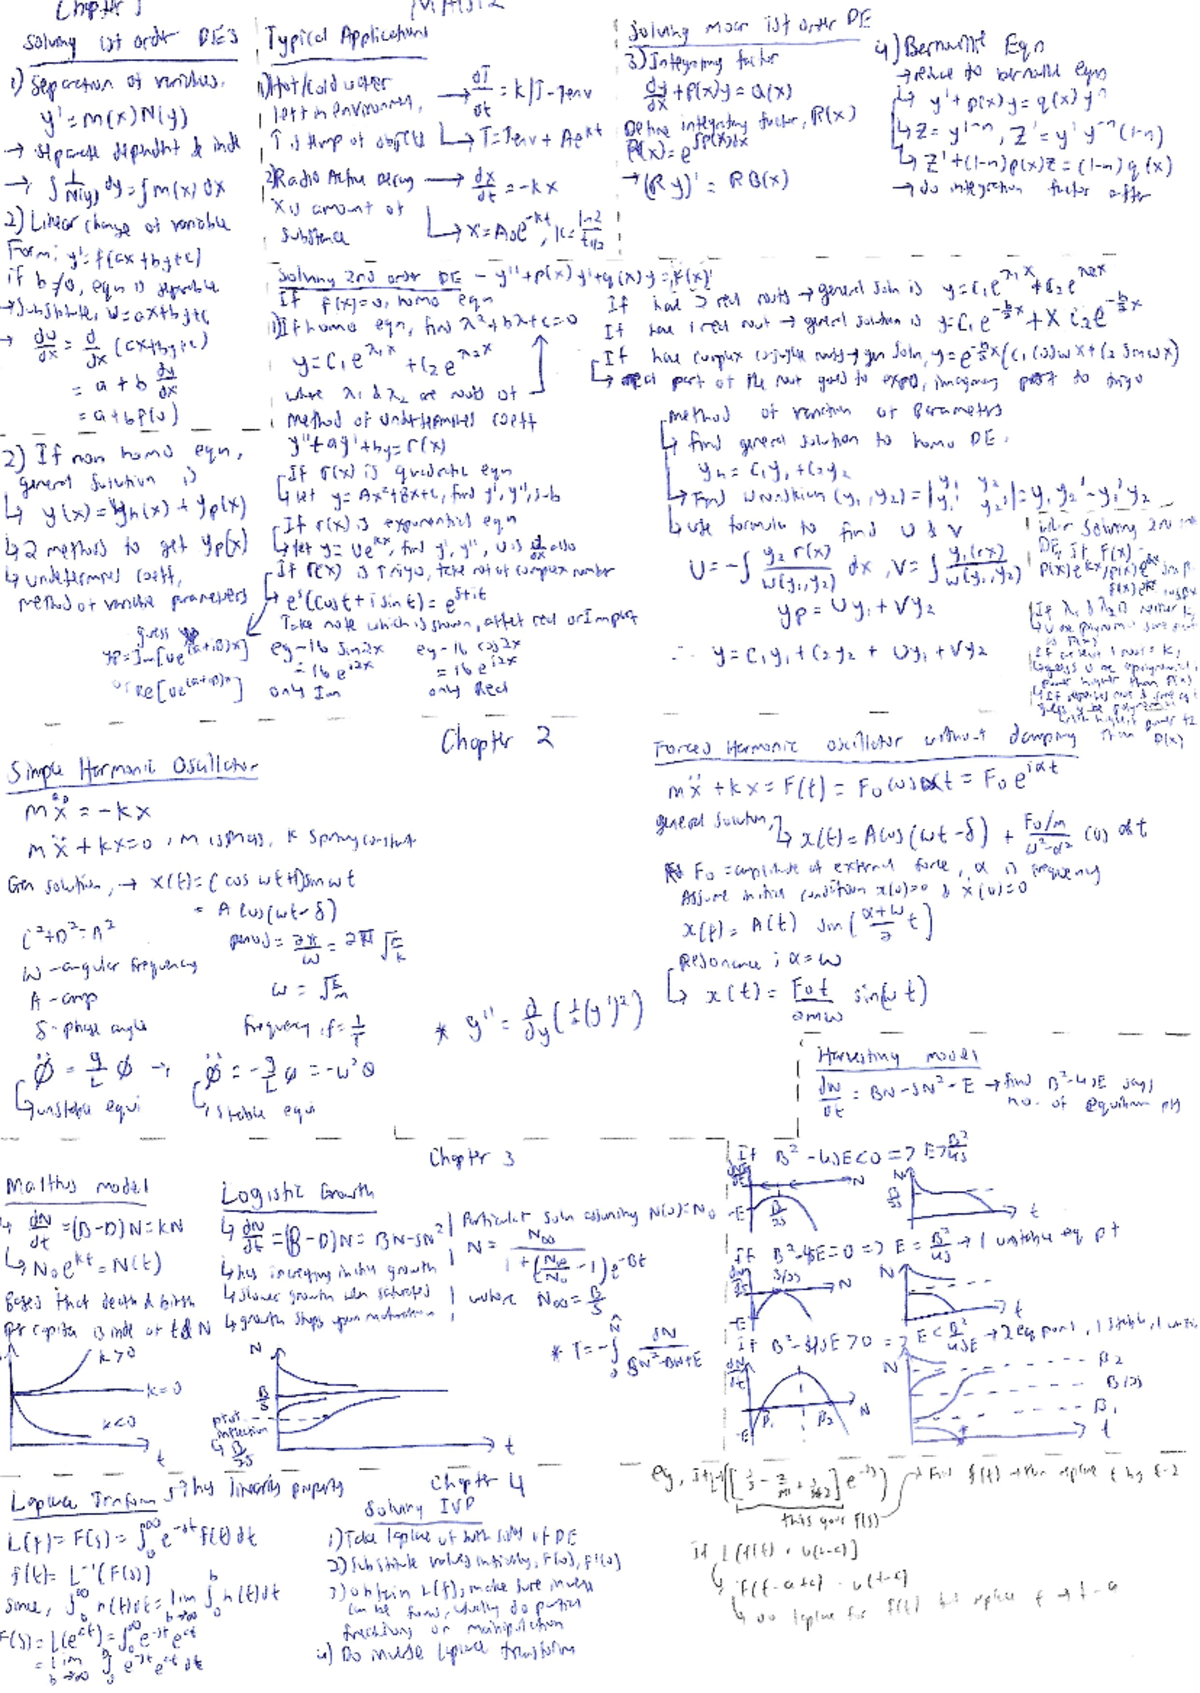 Chapter 1
MA1512
Solving 1st order DEs
1) Separation of variables.
y' = m(x)N(y)
→ separate dependent & inde
→ ∫ 1/N(y) dy = ∫ m(x) dx
2) Linear change of variable
Form: y' = f(ax+by+c)
if b≠0, eqn is separable
→ Substitute, u=ax+by+c
→ du/dx = d/dx (ax+by+c)
= a + b dy/dx
= a + b f(u)
Typical Applications
1) Hot/cold water
left in environment,
T is temp of object
→ dT/dt = k(T-Tenv
↳ T = Tenv + Ae^kt
2) Radio Active Decay → dx/dt = -kx
x is amount of
substance
↳ x = A₀e^-kt, k = ln2/t1/2
Solving more 1st order DE
3) Integrating factor
dy/dx + P(x)y = Q(x)
Define integrating factor, R(x)
R(x) = e^∫P(x)dx
→ (Ry)' = RQ(x)
4) Bernoulli Eqn
→ reduce to bernoulli eqn
↳ y' + p(x)y = q(x)y^n
↳ z = y^1-n, z' = y' y^-n (1-n)
↳ z' + (1-n)p(x)z = (1-n)q(x)
→ do integration factor after
Solving 2nd order DE - y'' + p(x)y' + q(x)y = F(x)
If F(x)=0, homo eqn
1) If homo eqn, find λ²+bλ+c=0
y = c₁e^λ₁x + c₂e^λ₂x
where λ₁ & λ₂ are roots of
If have 2 real roots → general soln is y = c₁e^λ₁x + c₂e^λ₂x
If have 1 real root → general solution is y = c₁e^-b/2x + x c₂e^-b/2x
If have complex conjugate roots → gen soln, y = e^-b/2x (c₁ cos wx + c₂ sin wx)
↳ real part of the root goes to expo, imaginary part to trigo
2) If non homo eqn,
general solution is
↳ y(x) = yh(x) + yp(x)
↳ 2 methods to get yp(x)
↳ undetermined coeff,
method of variable parameters
method of undetermined coeff
y'' + ay' + by = r(x)
If r(x) is quadratic eqn
↳ let y = Ax²+Bx+C, find y', y'', sub
If r(x) is exponential eqn
↳ let y = ue^kx, find y', y'', u is d/dx also
If r(x) is Trigo, take root of complex number
↳ e^s(cos t + i sin t) = e^s+it
Take note which is shown, affect real or Im part
guess yp
yp = Im[ue^(a+ib)x]
or Re[ue^(a+ib)x]
eg - 16 sin2x
= 16 e^i2x
only Im
eg - 16 cos 2x
= 16 e^i2x
only Real
method of variation of Parameters
↳ find general solution to homo DE.
yh = c₁y₁ + c₂y₂
↳ Find wronskian (y₁, y₂) = |y₁ y₂ y₁' y₂'| = y₁y₂' - y₁'y₂
↳ use formula to find U & V
U = -∫ y₂ r(x)/w(y₁,y₂) dx, V = ∫ y₁ r(x)/w(y₁,y₂)
yp = Uy₁ + Vy₂
∴ y = c₁y₁ + c₂y₂ + Uy₁ + Vy₂
when solving 2nd
DE, if F(x) =
Chapter 2
Simple Harmonic Oscillator
mẍ = -kx
mẍ + kx = 0, m is mass, k spring constant
Gen solution, → x(t) = C cos wt + D sin wt
= A cos(wt - δ)
C²+D²=A²
w - angular frequency
A - amp
δ - phase angle
period = 2π/w = 2π √m/k
w = √k/m
frequency, f = 1/T
φ̈ = g/L φ →
↳ unstable equi
φ̈ = -g/L φ = -w²φ
↳ stable equi
* y'' = d/dy (½(y')²)
Forced Harmonic oscillator without damping
mẍ + kx = F(t) = F₀ cos αt = F₀ e^iαt
general solution,
↳ x(t) = A cos(wt - δ) + F₀/m / w²-α² cos αt
F₀ = amplitude of external force, α is frequency
Assume initial condition x(0)=0 & ẋ(0)=0
x(t) = A(t) sin(α+w/2 t)
Resonance; α = w
↳ x(t) = F₀t/2mw sin(wt)
Harvesting model
dN/dt = BN - sN² - E → find B²-4sE says
no. of equilibrium pts
Chapter 3
Malthus model
↳ dN/dt = (B-D)N = kN
↳ N₀e^kt = N(t)
Says that death & birth
per capita is inde of t & N
k>0
k=0
k<0
t
Logistic Growth
↳ dN/dt = (B-D)N = BN - sN²
↳ has increasing initial growth
↳ slower growth when saturated
↳ growth stops upon maturation
N
B/s
point inflection
↳ B/2s
t
Particular soln assuming N(0)=N₀
N = N∞ / 1 + (N∞/N₀ - 1)e^-Bt
where N∞ = B/s
* T = -∫ dN / sN²-BN+E
If B² - 4sE < 0 => E > B²/4s
If B²-4sE=0 => E = B²/4s → 1 unstable eq pt
If B²-4sE>0 => E < B²/4s → 2 eq points, 1 stable, 1 unst
β₂
B/2s
β₁
t
Chapter 4
Laplace Transform → has linearity property
L(f) = F(s) = ∫₀^∞ e^-st f(t)dt
f(t) = L⁻¹(F(s))
since, ∫₀^∞ n(t)dt = lim b→∞ ∫₀^b n(t)dt
F(s) = L(e^ct) = ∫₀^∞ e^-st e^ct
= lim b→∞ ∫₀^b e^-st e^ct dt
Solving IVP
1) Take laplace of both sides of DE
2) Substitute values initially, F(0), F'(0)
3) obtain L(f), make sure inverse
can be found, usually do partial
fractions or manipulation
4) Do inverse laplace transform
this your F(s)
→ Find f(t) → then replace t by t-2
if L[f(t) · u(t-c)]
↳ do laplace for f(t) but replace t → t-a